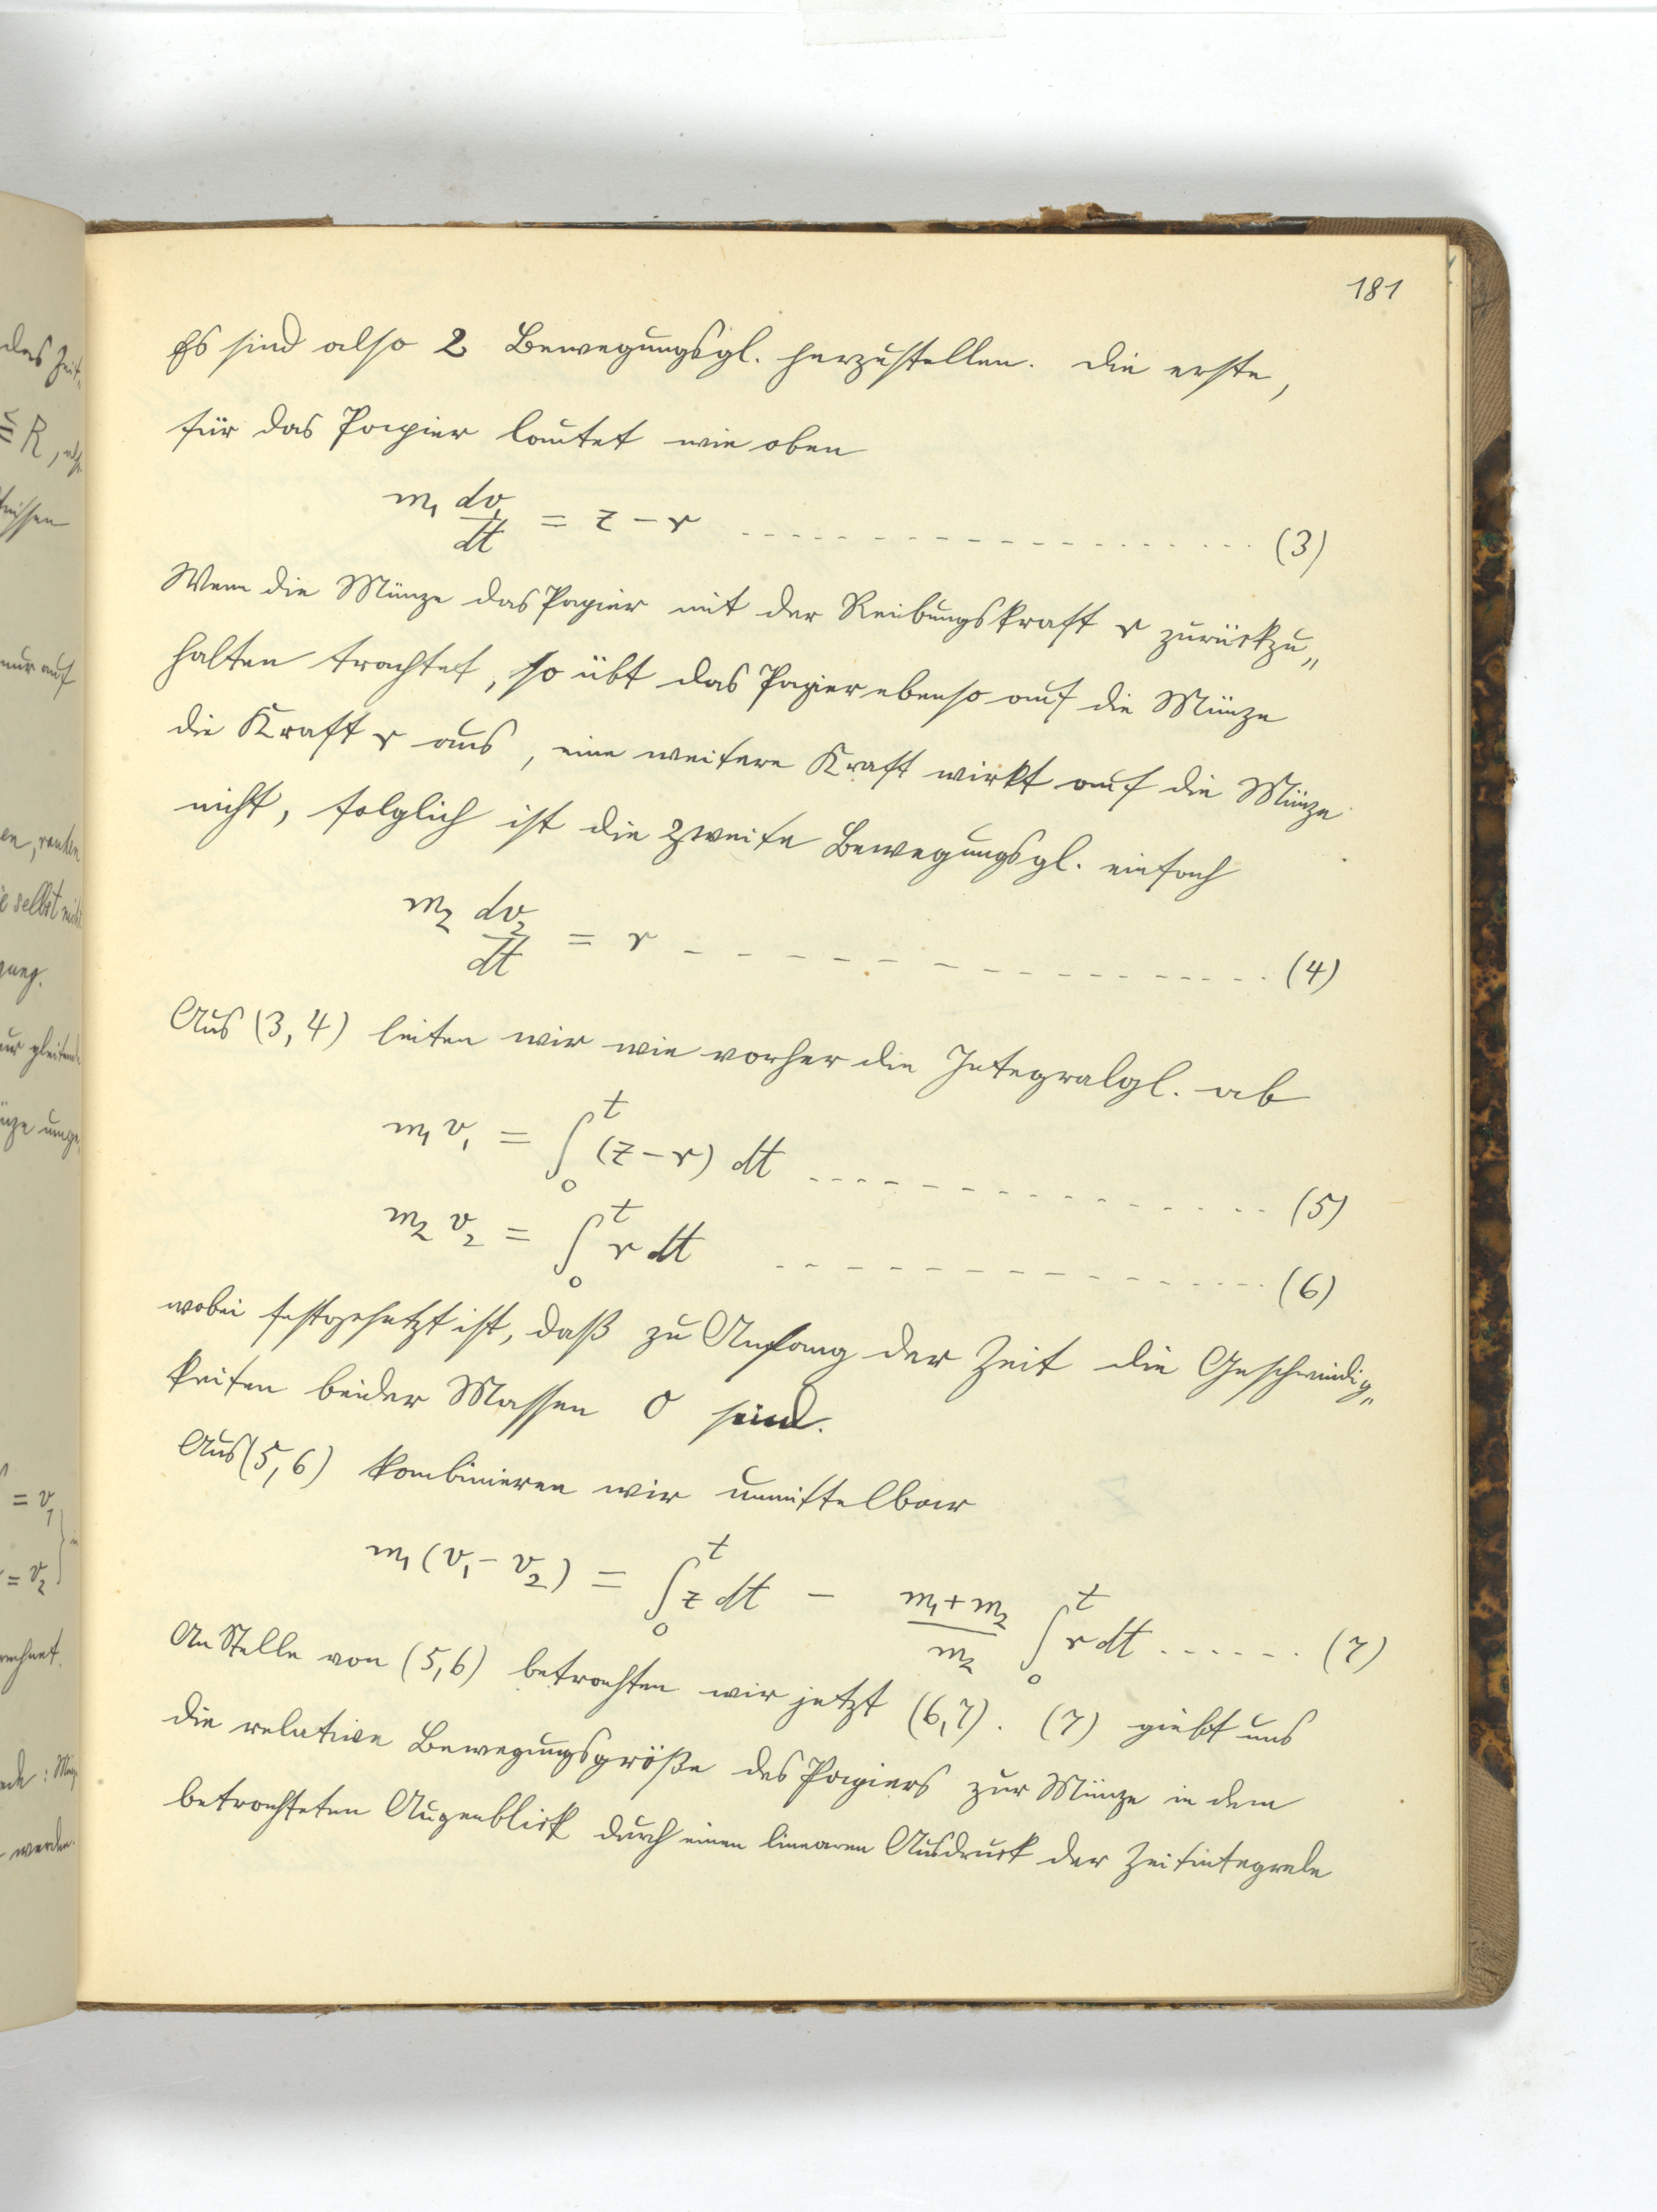 181
Es sind also 2 Bewegungsgl. herzustellen. Die erste,
für das Papier lautet wie oben
m₁ dv₁/dt = z − r --------------- (3)
Wenn die Münze das Papier mit der Reibungskraft r zurückzu„
halten trachtet, so übt das Papier ebenso auf die Münze
die Kraft r aus, eine weitere Kraft wirkt auf die Münze
nicht, folglich ist die zweite Bewegungsgl. einfach
m₂ dv₂/dt = r --------------- (4)
Aus (3, 4) leiten wir wie vorher die Integralgl. ab
m₁ v₁ = ∫₀ᵗ (z − r) dt --------------- (5)
m₂ v₂ = ∫₀ᵗ r dt --------------- (6)
wobei festgesetzt ist, daß zu Anfang der Zeit die Geschwindig„
keiten beider Massen 0 sind.
Aus (5, 6) kombinieren wir unmittelbar
m₁ (v₁ − v₂) = ∫₀ᵗ z dt − (m₁ + m₂)/m₂ ∫₀ᵗ r dt ------ (7)
An Stelle von (5, 6) betrachten wir jetzt (6, 7). (7) giebt uns
die relative Bewegungsgröße des Papiers zur Münze in dem
betrachteten Augenblick durch einen linearen Ausdruck der Zeitintegrale
das Zeit„
≦ R,
nur auf
selbst
gung.
= v₁
= v₂
werden.